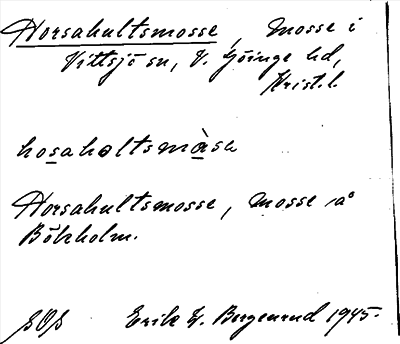 Horsahultsmosse, Mosse i
Vittsjö sn, V. Göinge hd,
Krist. l.
hosahɵltsmàsa
Horsahultsmosse, Mosse å
Bökholm.
SOS Erik E. Bergenrud 1945.